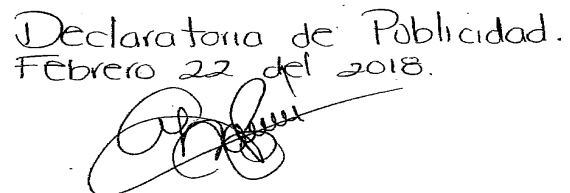 Declaratoria de Publicidad.
Febrero 22 del 2018.